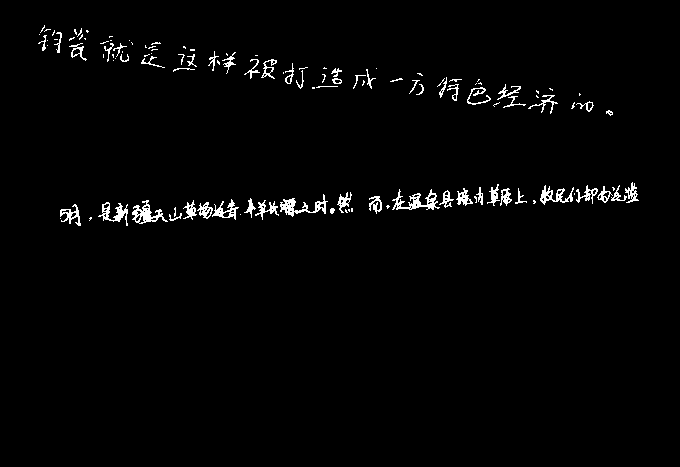 钧瓷就是这样被打造成一方特色经济的。
5月，是新疆天山草场返青、牛羊长膘之时。然而，在温泉县境内草原上，牧民们却为泛滥